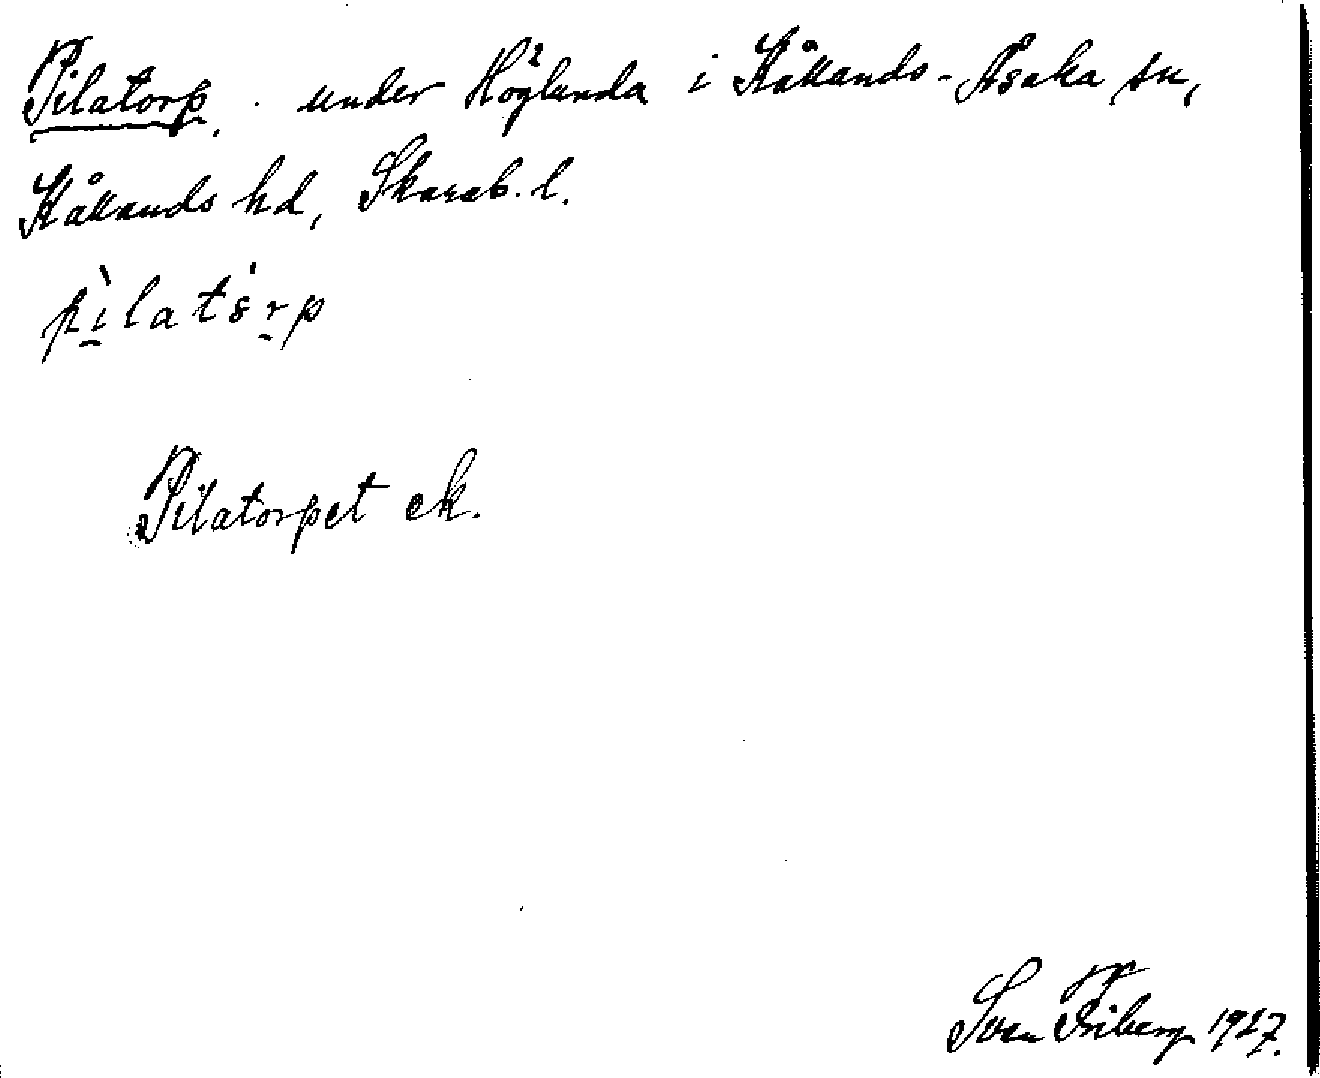 Pilatorp. under Höglunda i Kållands-Åsaka sn,
Kållands hd, Skarab. l.
pìlatórp
Pilatorpet ek.
Sven Friberg 1927.